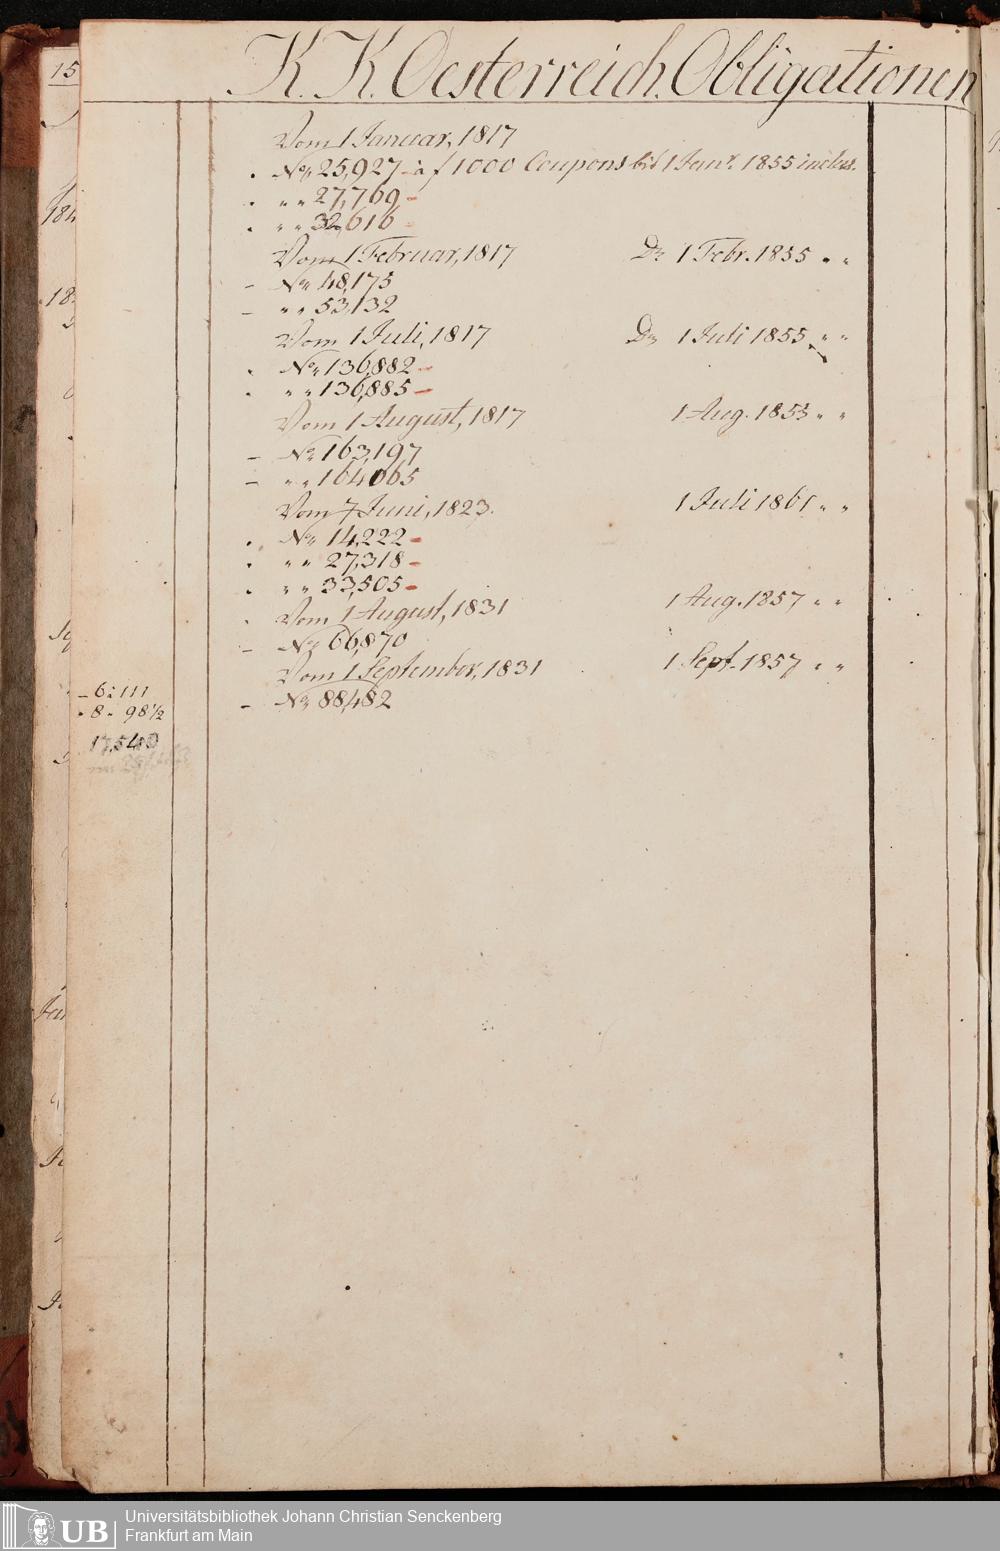 K. K. Oesterreich. Obligationen
Vom 1 Januar, 1817
. No „ 25,927 - à f 1000 Coupons bis 1 Janr. 1855 inclus.
. „ „ 27,769 -
. „ „ 32,616 -
Vom 1 Februar, 1817 Do 1 Febr. 1855 „ „
- No „ 48,175
- „ „ 53,132
Vom 1 Juli, 1817 Do 1 Juli 1855 „ „
. No „ 136,882 -
. „ „ 136,885 -
Vom 1 August, 1817 1 Aug. 1855 „ „
- No „ 163,197
- „ „ 164,065
Vom 7 Juni, 1823. 1 Juli 1861 „ „
. No „ 14,222 -
. „ „ 27,318 -
. „ „ 33,505 -
. Vom 1 August, 1831 1 Aug. 1857 „ „
- No „ 66,870
Vom 1 September, 1831 1 Sept. 1857 „ „
- No „ 88,482
- 6 : 111
. 8 „ 98 1/2
17,540
15
UB
Universitätsbibliothek Johann Christian Senckenberg
Frankfurt am Main